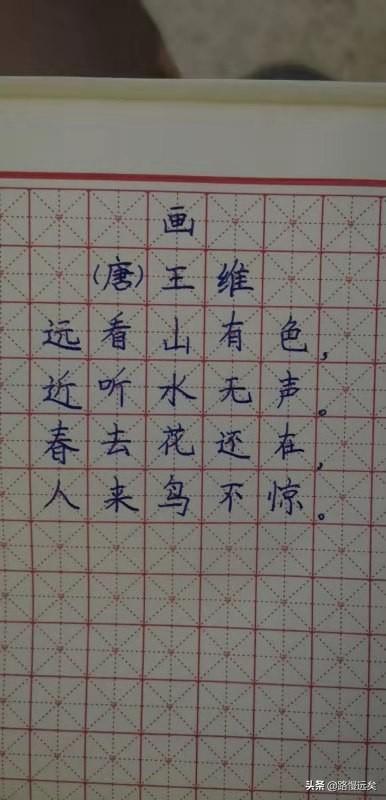 画
(唐)王维
远看山有色,
近听水无声。
春去花还在,
人来鸟不惊。
头条 @路慢远矣